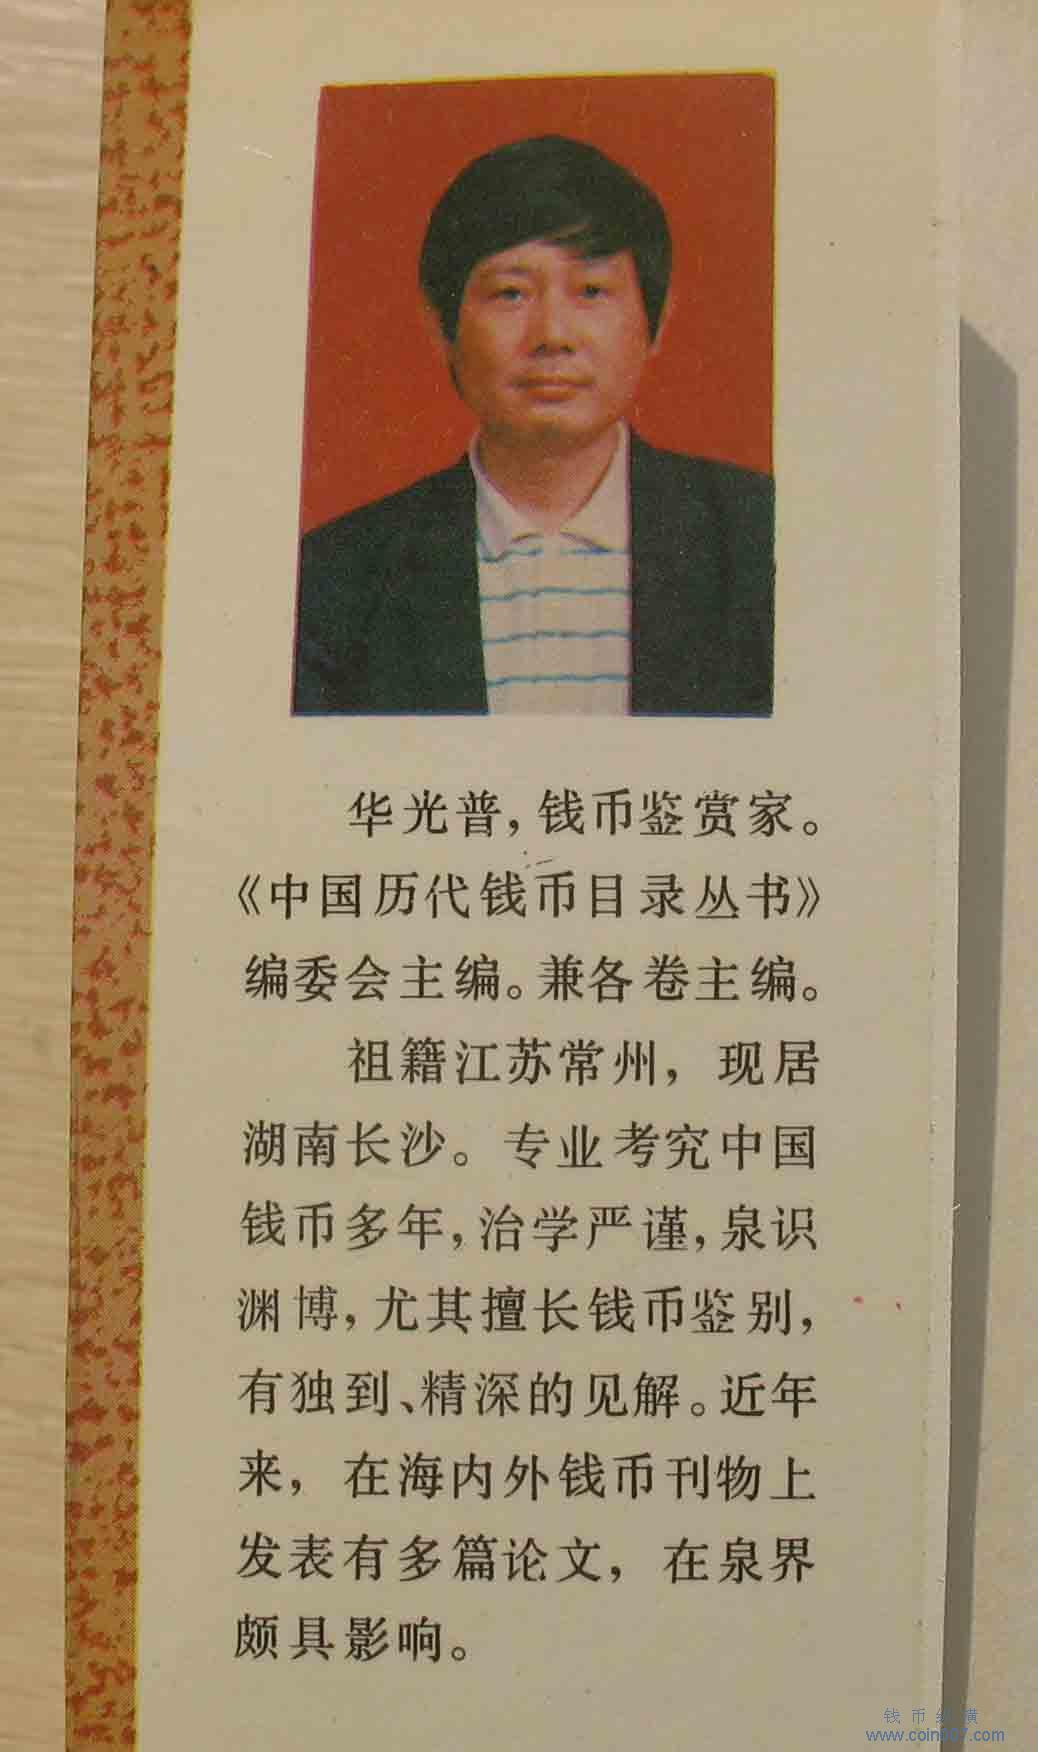 华光普，钱币鉴赏家。
《中国历代钱币目录丛书》
编委会主编。兼各卷主编。
祖籍江苏常州，现居
湖南长沙。专业考究中国
钱币多年，治学严谨，泉识
渊博，尤其擅长钱币鉴别，
有独到、精深的见解。近年
来，在海内外钱币刊物上
发表有多篇论文，在泉界
颇具影响。
钱币纵横
www.coin007.com